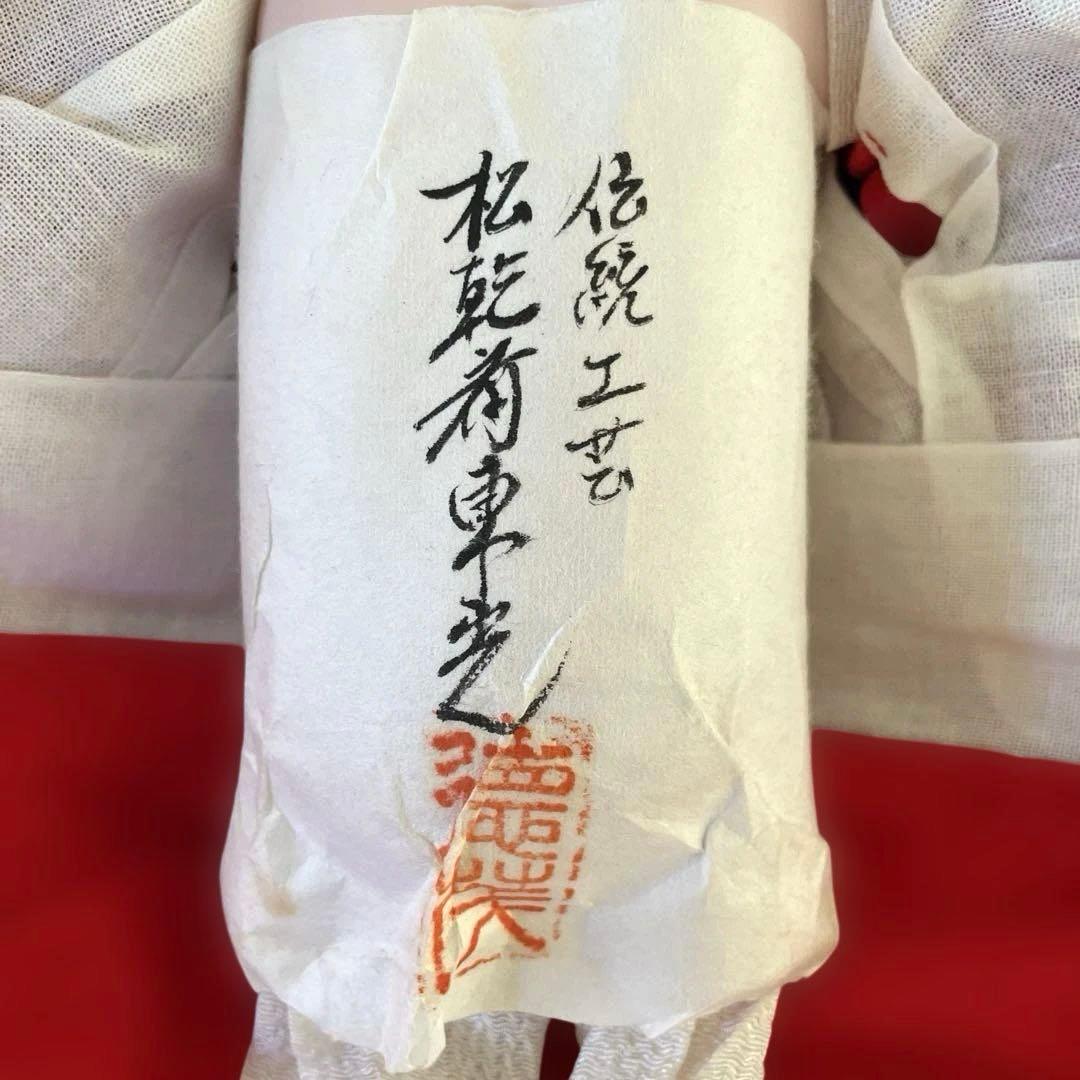 伝統工芸
松乾斎東光